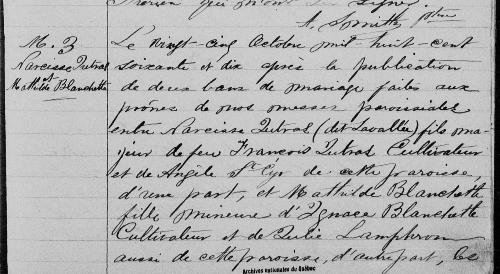 A. Smith ptre
M. 3
Narcisse Dutras
et
Mathilde Blanchette
Le vingt-cinq Octobre mil huit-cent
soixante et dix après la publication
de deux bans de mariage faites aux
prônes de nos messes paroissiales
entre Narcisse Dutras (dit Lavallée) fils ma-
jeur de feu François Dutras Cultivateur
et de Angèle St Cyr de cette paroisse,
d'une part, et Mathilde Blanchette
fille mineure d'Ignace Blanchette
Cultivateur et de Julie Lamphron
aussi de cette paroisse, d'autre part, les
Archives nationales du Québec